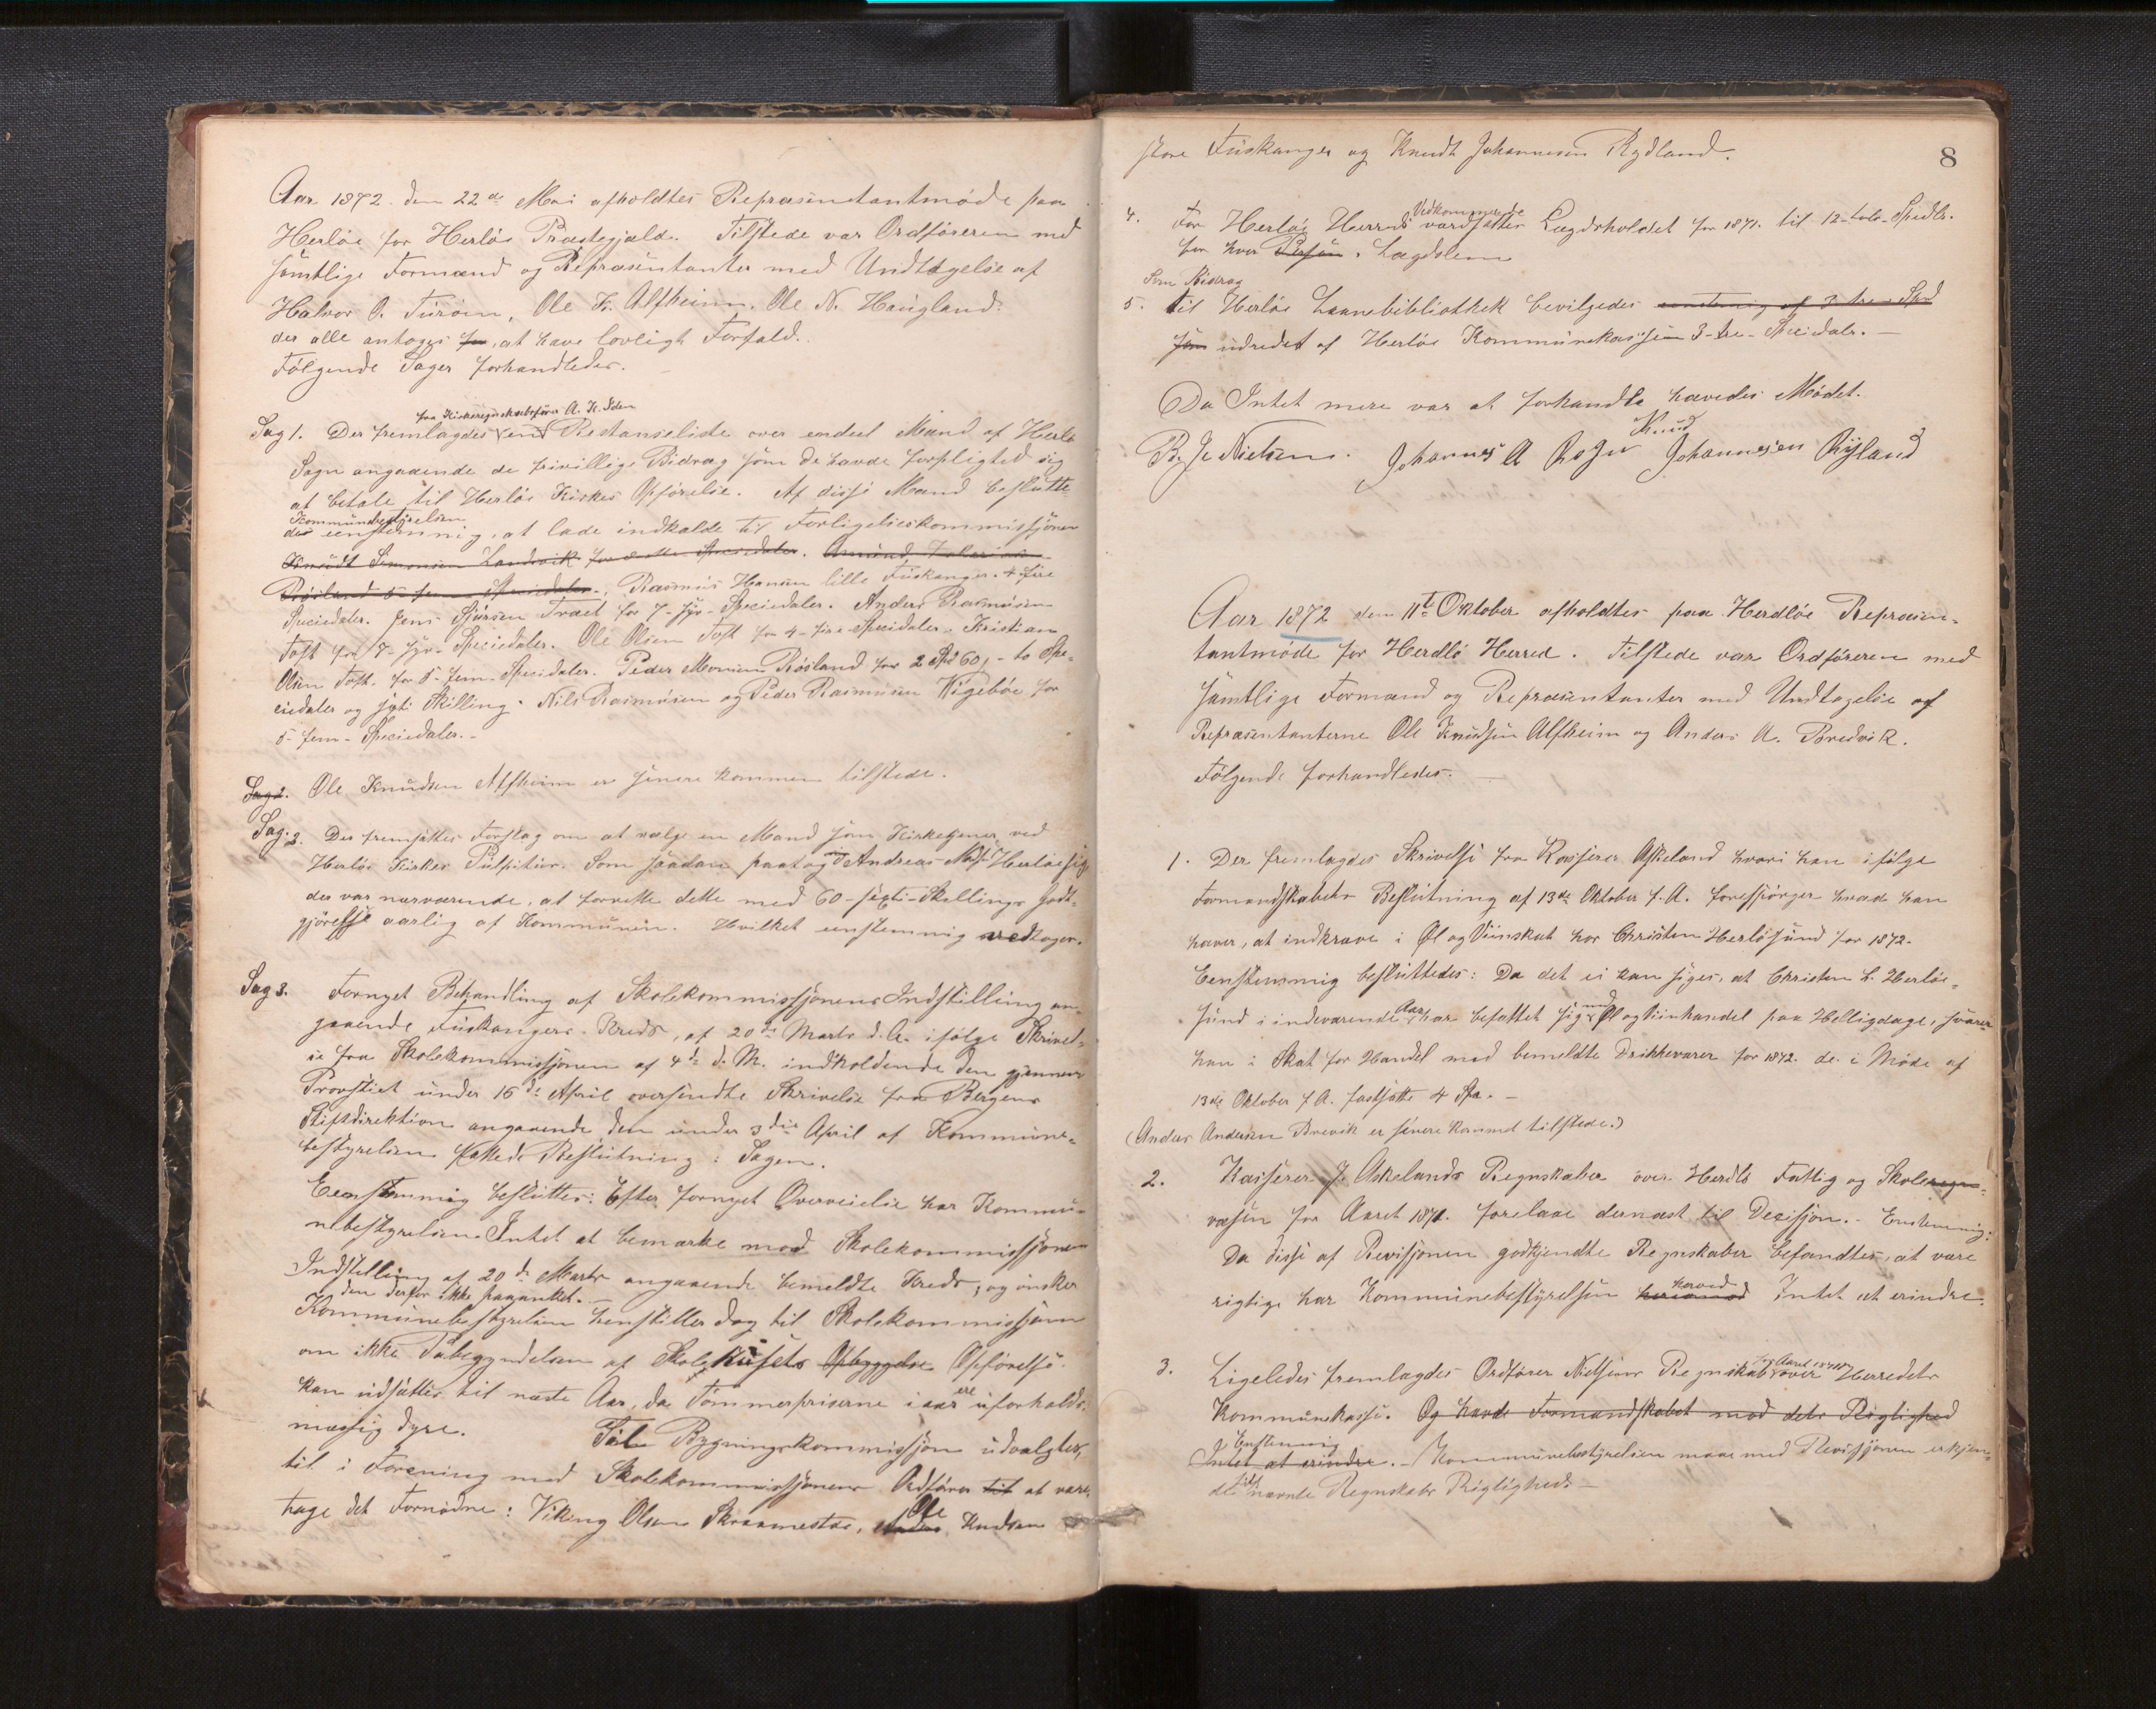 Aar 1872 den 22de Mai afholdtes Repræsentantmøde paa
Herløe for Herløe Præstegjæld. Tilstede var Ordføreren med
samtlige Formænd og Repræsentanter med Undtagelse af
Halvor O. Turøen, Ole K. Alfheim. Ole N. Haugland.
der alle antoges for, at have lovligt Forfald.
Følgende Sager forhandledes.
fra Kirkeregnskabsfører A. K. Iden
Sag 1. Der fremlagdes en Restanseliste over endeel Mænd af Herlø
Sogn angaaende de frivillige Bidrag som de havde forpligted sig
at betale til Herløe Kirkes Opførelse. Af disse Mænd beslutte
Kommunebestyrelsen
des eenstemmig, at lade indkalde til Forligelseskommissjonen
Knudt Simonsen Landsvik for Speciedaler. Amund
Røsland 5 fem Speciedaler. Rasmus Hansen lille Fuskanger. 4 fire
Speciedaler. Jens Sjursen Træet for 7-syv-Speciedaler. Anders Rasmusen
Toft for 7-syv-Speciedaler. Ole Olsen Toft for 4-fire-Speciedaler. Kristian
Olsen Toft. for 5-fem-Speciedaler. Peder Monsen Røsland for 2 Spd 60, - to Spe-
ciedaler og sexti Skilling. Nils Rasmusen og Peder Rasmusen Vigebøe for
5-fem-Speciedaler.-
Sag 2. Ole Knudsen Alfheim er senere kommen tilstede.
Sag. 2. Der fremsattes Forslag om at vælge en Mand som Kirketjener ved
Herløe Kirkes Pulpitur. Som saadan paatog sig Andreas Herløe sig
der var nærværende, at forrette dette med 60-sexti-Skillings Godt-
gjørelse aarlig af Kommunen. Hvilket eenstemmig vedtoges.
Sag 3. Fornyet Behandling af Skolekommissjonens Indstilling an-
gaaende Fuskangers Kreds, af 20de Marts d. A. ifølge Skrivel-
se fra Skolekommissjonen af 4de d. M. indholdende den gjennem
Provstiet under 16de April oversendte Skrivelse fra Bergens
Stiftsdirektion angaaende den under 3die April af Kommune-
bestyrelsen fattede Beslutning i Sagen.
Eenstemmig besluttes: Efter fornyet Overveielse har Kommu-
nebestyrelsen Intet at bemærke mod Skolekommissjonens
Indstilling af 20de Marts angaaende bemeldte Kreds, og ønsker
den derfor ikke paaanket.
Kommunebestyrelsen henstiller dog til Skolekommissjonen
om ikke Paabegyndelsen af Skolehusets Opbyggelse Opførelse
kan udsættes til næste Aar, da Tømmerpriserne i aar ere uforholds-
mæssig dyre. Til Bygningskommissjon udvalgtes,
til i Forening med Skolekommissionens Ordfører til at vare-
tage det Fornødne: Viking Olsen Skraamestøe, Anders Ole Knudsen
8
store Fuskanger og Knudt Johannesen Rydland.
4. For Herløe Herreds Vedkommende værdsattes Lægdsholdet for 1871. til 12-tolv-Spedlr.
for hver Person. Lægdslem
Som Bidrag
5. til Herløe Laanebibliothek bevilgedes eenstemig af 3 tre Spd
som udredet af Herløe Kommunekassen 3-tre-Speciedalr.-
Da Intet mere var at forhandle hævedes Mødet.
B. Je Nielsen. Johannes A Knud Johannesen Rÿland
Aar 1872 den 11te Oktober afholdtes paa Herdløe Repræsen-
tantmøde for Herdlø Herred. Tilstede var Ordføreren med
samtlige Formænd og Repræsentanter med Undtagelse af
Repræsentanterne Ole Knudsen Alfheim og Anders A. Bredvik.
Følgende forhandledes.-
1. Der fremlagdes Skrivelse fra Kasserer Askeland hvori han ifølge
Formandskabets Beslutning af 13de Oktober f. A. forespørger hvad han
haver, at indkræve i Øl og Viinskat hos Christen Herløsund for 1872.
Eenstemmig besluttedes: Da det ei kan siges, at Christen L. Herløe-
sund i indeværende Aar har befattet sig med Øl og Viinhandel paa Helligdage, svarer
han i Skat for Handel med bemeldte Drikkevarer for 1872 de i Møde af
13de Oktober f A. fastsatte 4 Spd.-
(Anders Andersen Brevik er senere kommed tilstede.)
2. Kasserer J. Askelands Regnskaber over Herdlø Fattig og Skoleregn-
væsen for Aaret 1871. forelaae dernæst til Decisjon.- Enstemmig:
Da disse af Revisjonen godkjendte Regnskaber befandtes, at være
rigtige har Kommunebestyrelsen heriamod herved Intet at erindre.
3. Ligeledes fremlagdes Ordfører Nielsens Regnskab for Aaret 1871 over Herredets
Kommunekasse. Og havde Formandskabet mod dets Rigtighed
Enstemmig
Intet at erindre.- Kommunebestyrelsen maae med Revisjonen erkjen-
de nævnte Regnskabs Rigtighed.-